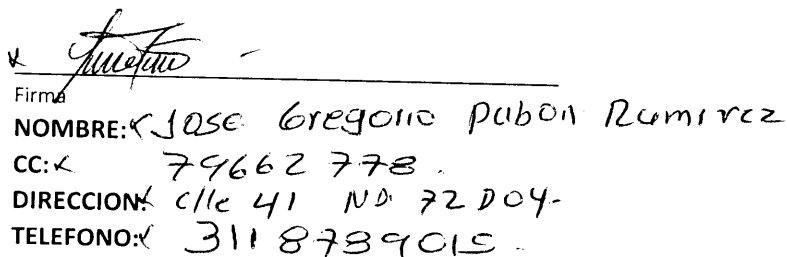 Firma
NOMBRE: Jose Gregorio Pabon Ramirez
CC: 79662 778.
DIRECCION: Clle 41 NO. 72 D04-
TELEFONO: 3118789015.